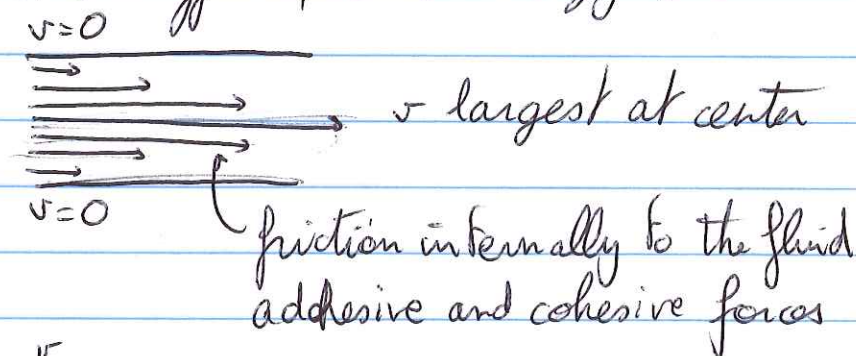 v=0
v largest at center
v=0
friction internally to the fluid
addhesive and cohesive forces